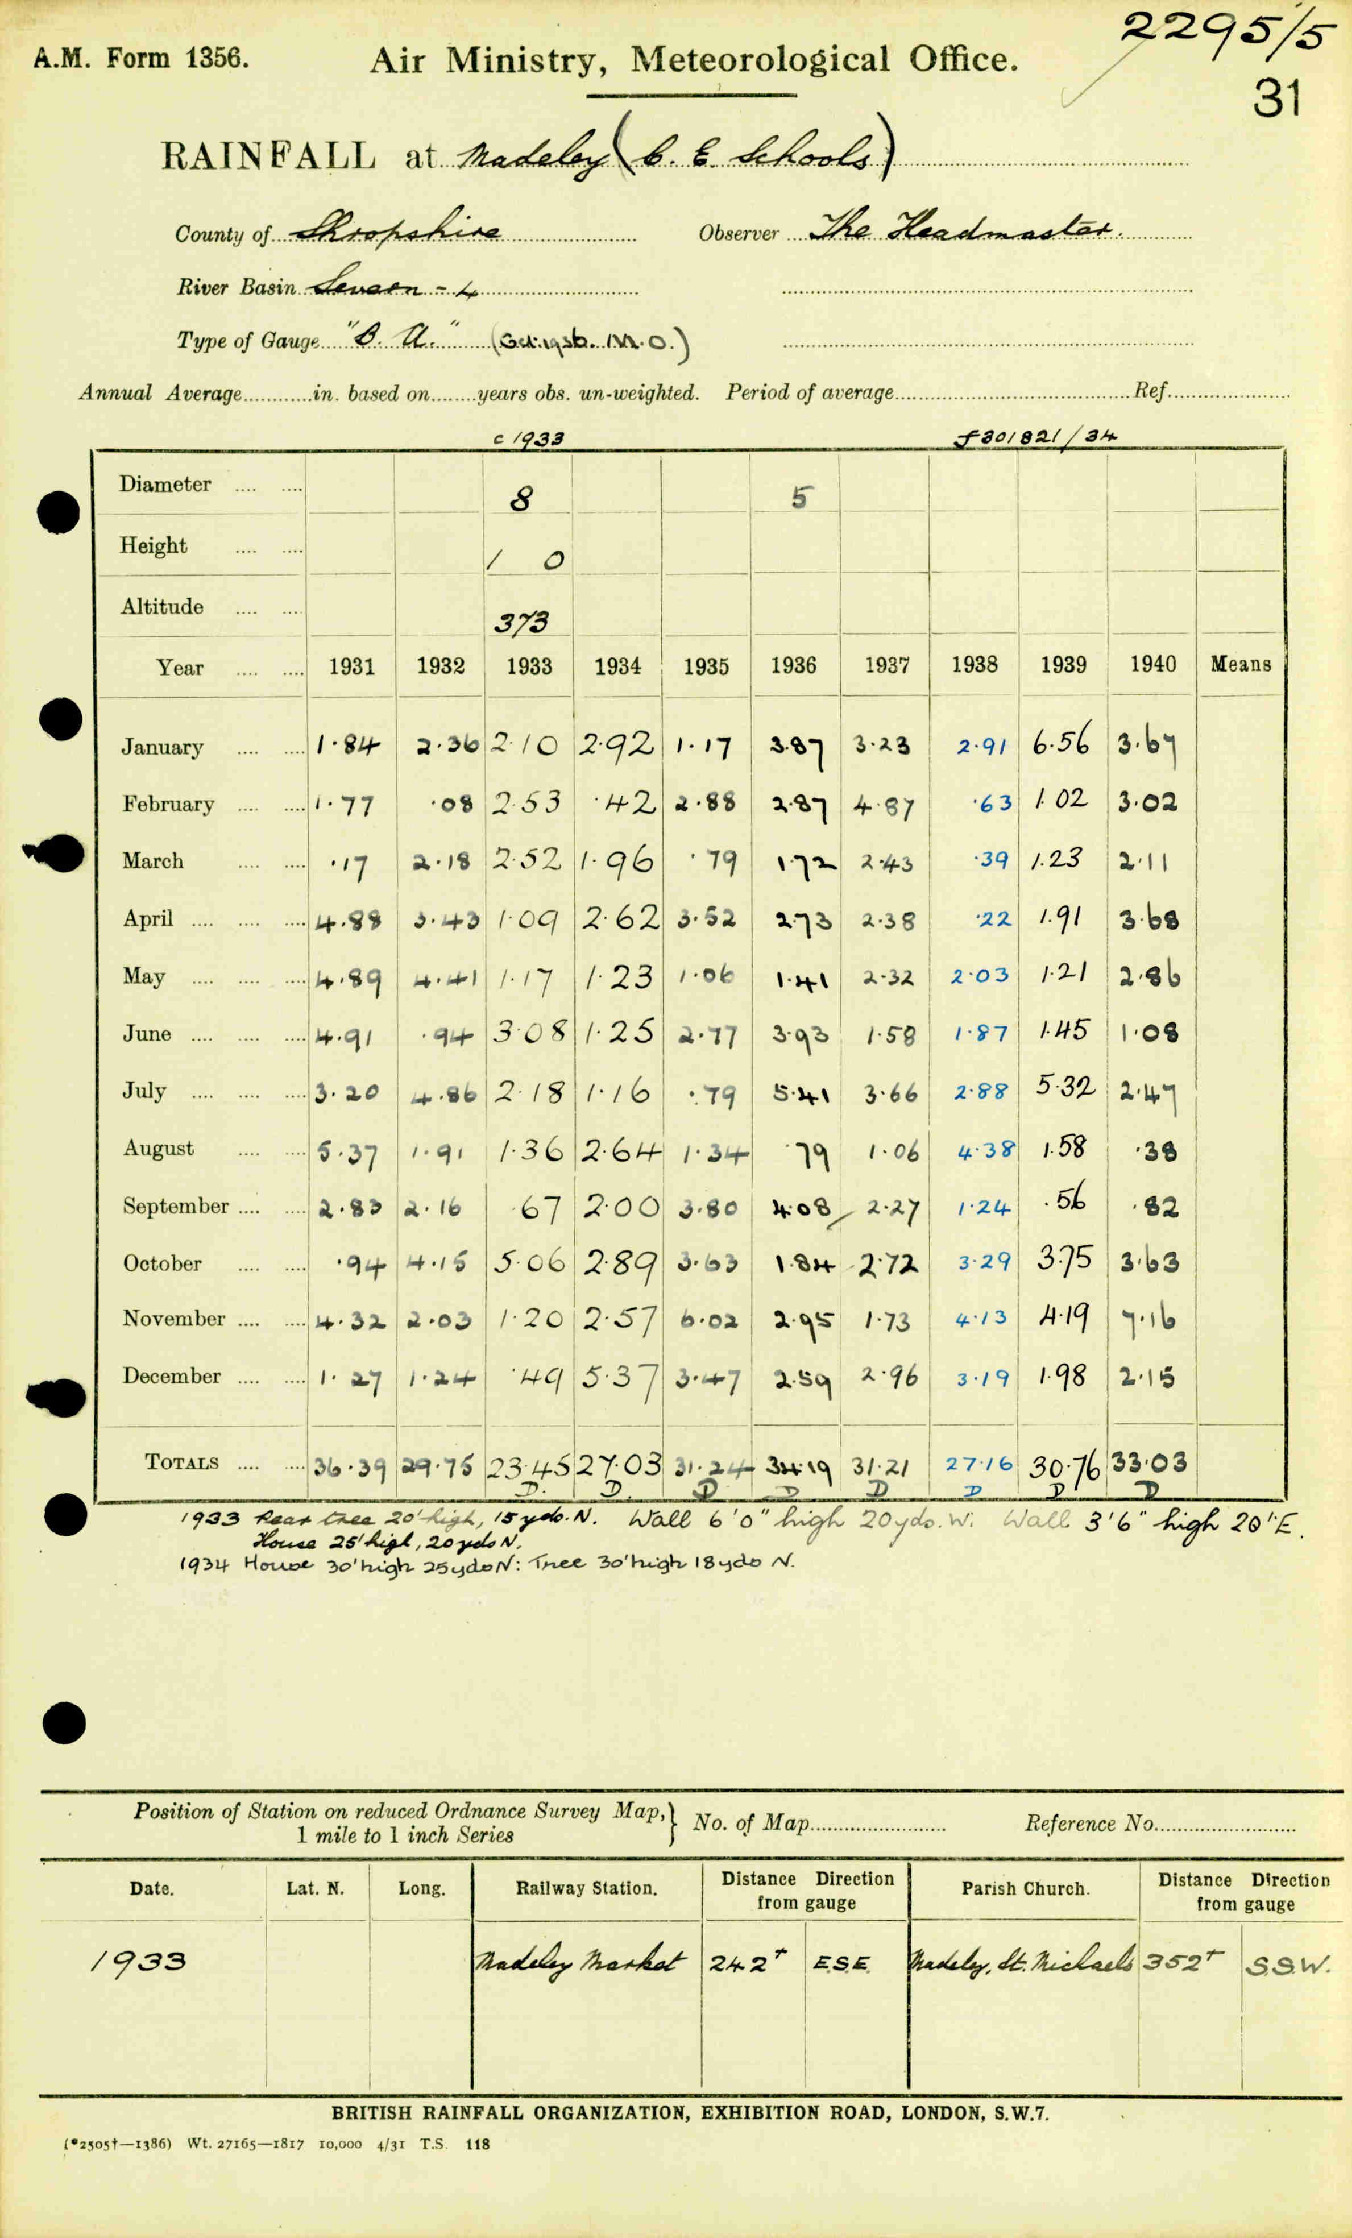 2295/5
A.M. Form 1356. Air Ministry, Meteorological Office.
31
RAINFALL at Madeley (C. E. Schools)
County of Shropshire Observer The Headmaster.
River Basin Severn - 4
Type of Gauge "B. A." (Oct. 1936. M.O.)
Annual Average in. based on years obs. un-weighted. Period of average Ref.
c 1933 f301821/34
Diameter 8 5
Height 1 0
Altitude 373
Year 1931 1932 1933 1934 1935 1936 1937 1938 1939 1940 Means
January 1·84 2·36 2·10 2·92 1·17 3·87 3·23 2·91 6·56 3·67
February 1·77 ·08 2·53 ·42 2·88 2·87 4·87 ·63 1·02 3·02
March ·17 2·18 2·52 1·96 ·79 1·72 2·43 ·39 1·23 2·11
April 4·88 3·43 1·09 2·62 3·52 2·73 2·38 ·22 1·91 3·68
May 4·89 4·41 1·17 1·23 1·06 1·41 2·32 2·03 1·21 2·86
June 4·91 ·94 3·08 1·25 2·77 3·93 1·58 1·87 1·45 1·08
July 3·20 4·86 2·18 1·16 ·79 5·41 3·66 2·88 5·32 2·47
August 5·37 1·91 1·36 2·64 1·34 ·79 1·06 4·38 1·58 ·38
September 2·83 2·16 ·67 2·00 3·80 4·08 2·27 1·24 ·56 ·82
October ·94 4·15 5·06 2·89 3·63 1·84 2·72 3·29 3·75 3·63
November 4·32 2·03 1·20 2·57 6·02 2·95 1·73 4·13 4·19 7·16
December 1·27 1·24 ·49 5·37 3·47 2·59 2·96 3·19 1·98 2·15
TOTALS 36·39 29·75 23·45 27·03 31·24 34·19 31·21 27·16 30·76 33·03
D. D. D D D D D D
1933 Pear tree 20' high, 15 yds. N. Wall 6'0" high 20 yds. W. Wall 3'6" high 20' E.
House 25' high, 20 yds N.
1934 House 30' high 25 yds N: Tree 30' high 18 yds N.
Position of Station on reduced Ordnance Survey Map, 1 mile to 1 inch Series } No. of Map Reference No.
Date. Lat. N. Long. Railway Station. Distance Direction from gauge Parish Church. Distance Direction from gauge
1933 Madeley Market 242° E.S.E. Madeley, St. Michaels 352° S.S.W.
BRITISH RAINFALL ORGANIZATION, EXHIBITION ROAD, LONDON, S.W.7.
(*2505†—1386) Wt. 27165—1817 10,000 4/31 T.S. 118